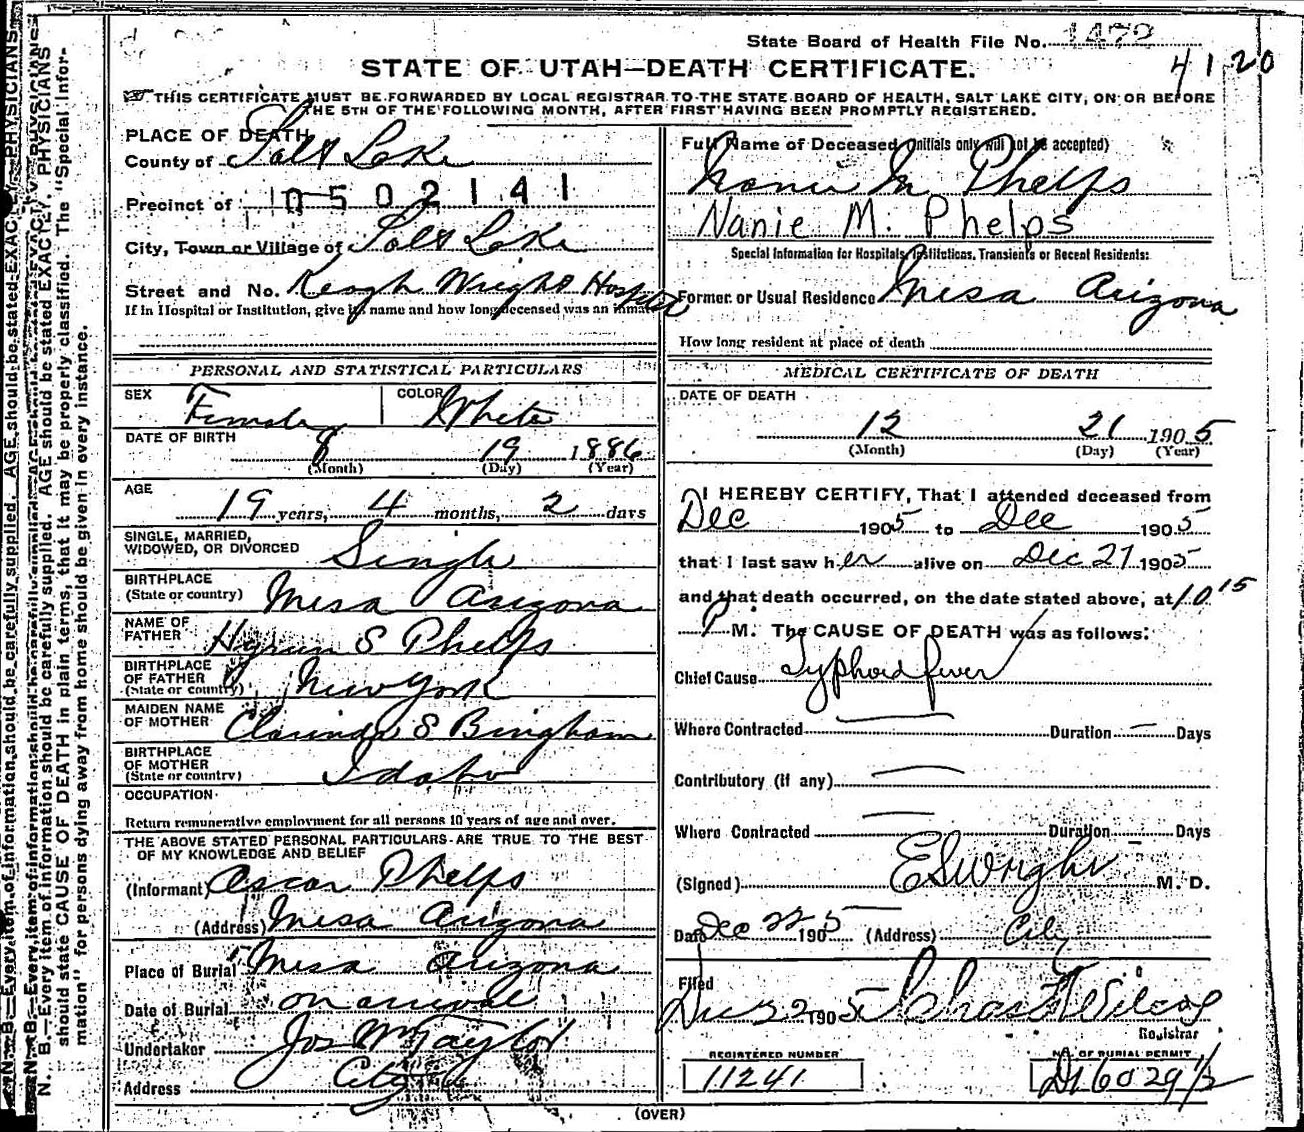 State Board of Health File No. 1472
4120
STATE OF UTAH—DEATH CERTIFICATE.
THIS CERTIFICATE MUST BE FORWARDED BY LOCAL REGISTRAR TO THE STATE BOARD OF HEALTH, SALT LAKE CITY, ON OR BEFORE
THE 5TH OF THE FOLLOWING MONTH, AFTER FIRST HAVING BEEN PROMPTLY REGISTERED.
PLACE OF DEATH
County of Salt Lake
Precinct of 0502141
City, Town or Village of Salt Lake
Street and No. Keogh Wright Hospital
If in Hospital or Institution, give its name and how long deceased was an inmate
PERSONAL AND STATISTICAL PARTICULARS
SEX Female COLOR White
DATE OF BIRTH
8 19 1886
(Month) (Day) (Year)
AGE
19 years, 4 months, 2 days
SINGLE, MARRIED,
WIDOWED, OR DIVORCED Single
BIRTHPLACE
(State or country) Mesa Arizona
NAME OF
FATHER Hyrum S Phelps
BIRTHPLACE
OF FATHER
(State or country) New York
MAIDEN NAME
OF MOTHER Clarinda S Bingham
BIRTHPLACE
OF MOTHER
(State or country) Idaho
OCCUPATION
Return remunerative employment for all persons 10 years of age and over.
THE ABOVE STATED PERSONAL PARTICULARS ARE TRUE TO THE BEST
OF MY KNOWLEDGE AND BELIEF
(Informant) Oscar Phelps
(Address) Mesa Arizona
Place of Burial Mesa Arizona
Date of Burial on arrival
Undertaker Jos Wm Taylor
Address City
Full Name of Deceased (Initials only will not be accepted)
Nanie M Phelps
Nanie M. Phelps
Special Information for Hospitals, Institutions, Transients or Recent Residents:
Former or Usual Residence Mesa Arizona
How long resident at place of death
MEDICAL CERTIFICATE OF DEATH
DATE OF DEATH
12 21 1905
(Month) (Day) (Year)
I HEREBY CERTIFY, That I attended deceased from
Dec 1905 to Dec 1905
that I last saw her alive on Dec 21 1905
and that death occurred, on the date stated above, at 10 15
P M. The CAUSE OF DEATH was as follows:
Chief Cause Typhoid fever
Where Contracted — Duration — Days
Contributory (if any) —
Where Contracted — Duration — Days
(Signed) E S Wright M. D.
Date Dec 22 1905 (Address) City
Filed
Dec 22 1905 Chas F Wilcox
Registrar
REGISTERED NUMBER
11241
NO. OF BURIAL PERMIT
D16029½
(OVER)
N. B.—Every item of information should be carefully supplied. AGE should be stated EXACTLY. PHYSICIANS
should state CAUSE OF DEATH in plain terms, that it may be properly classified. The "Special Infor-
mation" for persons dying away from home should be given in every instance.